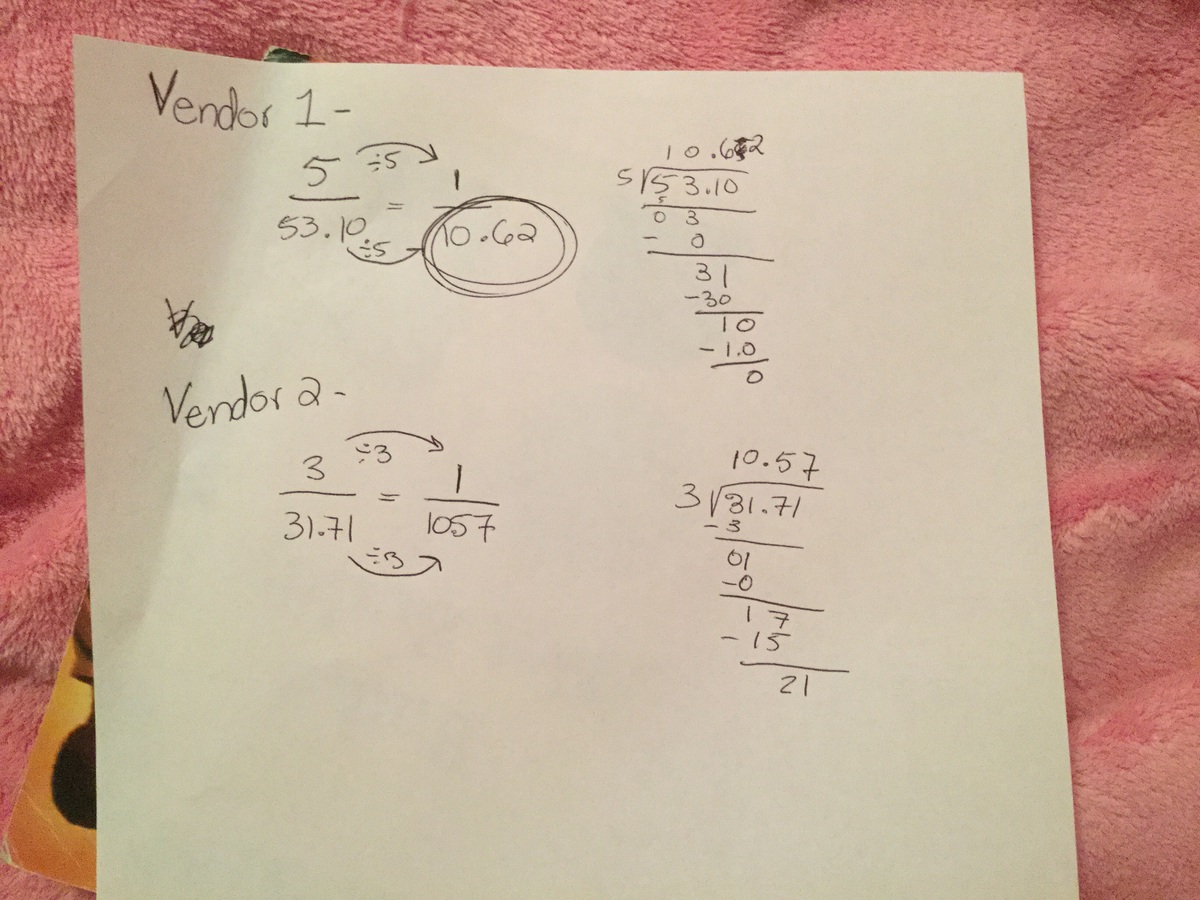 Vendor 1-
5 ÷5 1
53.10 = 10.62
÷5
10.62
5 53.10
5
0 3
- 0
31
-30
10
-1.0
0
Vendor 2-
3 ÷3 1
31.71 = 1057
÷3
10.57
3 31.71
-3
01
-0
17
-15
21